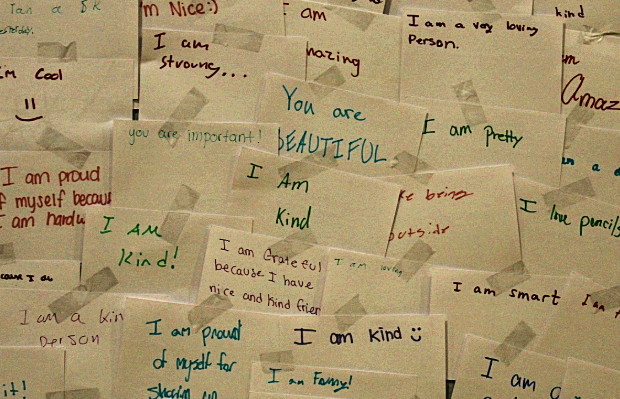 I ran a 5K
yesterday.
I'm Nice:)
I am
amazing
I am a very loving
Person.
kind
I am
strong...
I'm Cool
You are
BEAUTIFUL
you are important!
I am Pretty
Amaz
I am proud
of myself becaus
I am hardw
I Am
Kind
like being
outside
I love pencils
I AM
kind!
I am Grateful
because I have
nice and kind frien
I am loving
because I am
I am smart
I am
I am a kin
person
I am proud
of myself for
showing up
I am kind
I am Funny!
I am
it!